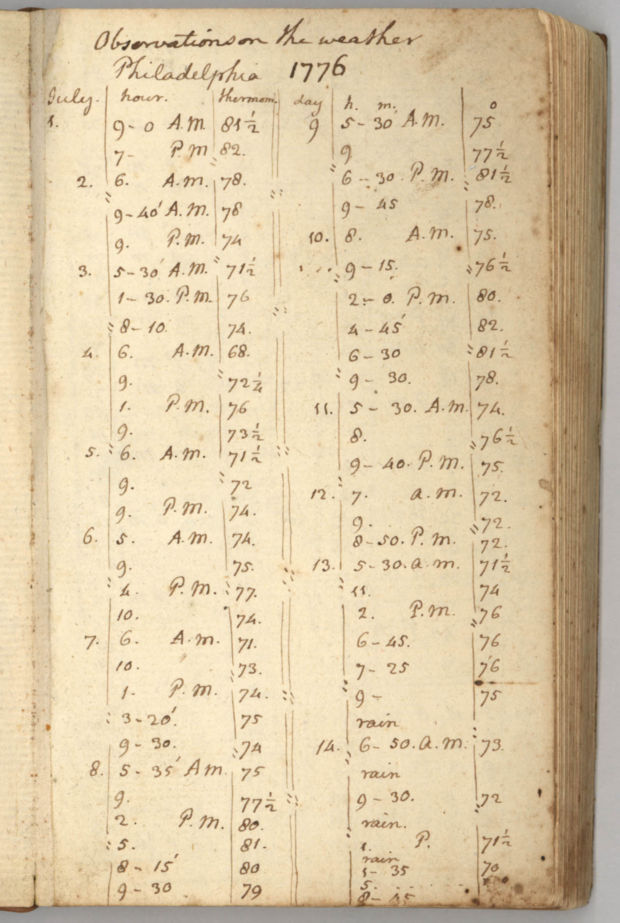 Observations on the weather
Philadelphia 1776
July. hour. thermom.
1. 9-0 A.M. 81½
7- P.M. 82.
2. 6. A.M. 78.
9-40' A.M. 78
9. P.M. 74
3. 5-30 A.M. 71½
1-30. P.M. 76
8-10. 74.
4. 6. A.M. 68.
9. 72¼
1. P.M. 76
9. 73½
5. 6. A.M. 71½
9. 72
9. P.M. 74.
6. 5. A.M. 74.
9. 75.
4. P.M. 77.
10. 74.
7. 6. A.M. 71.
10. 73.
1. P.M. 74.
3-20'. 75
9-30. 74
8. 5-35' A.M. 75
9. 77½
2. P.M. 80.
5. 81.
8-15' 80
9-30 79
day h. m. o
9 5-30' A.M. 75
9 77½
6-30. P.M. 81½
9-45 78.
10. 8. A.M. 75.
9-15. 76½
2-0. P.M. 80.
4-45' 82.
6-30 81½
9-30. 78.
11. 5-30. A.M. 74.
8. 76½
9-40. P.M. 75.
12. 7. a.m. 72.
9. 72.
8-50. P.M. 72.
13. 5-30. a.m. 71½
11. 74
2. P.M. 76
6-45. 76
7-25 76
9- 75
rain
14. 6-50. a.m. 73.
rain
9-30. 72
rain.
1. P. 71½
rain
1-35 70
5.
8-45